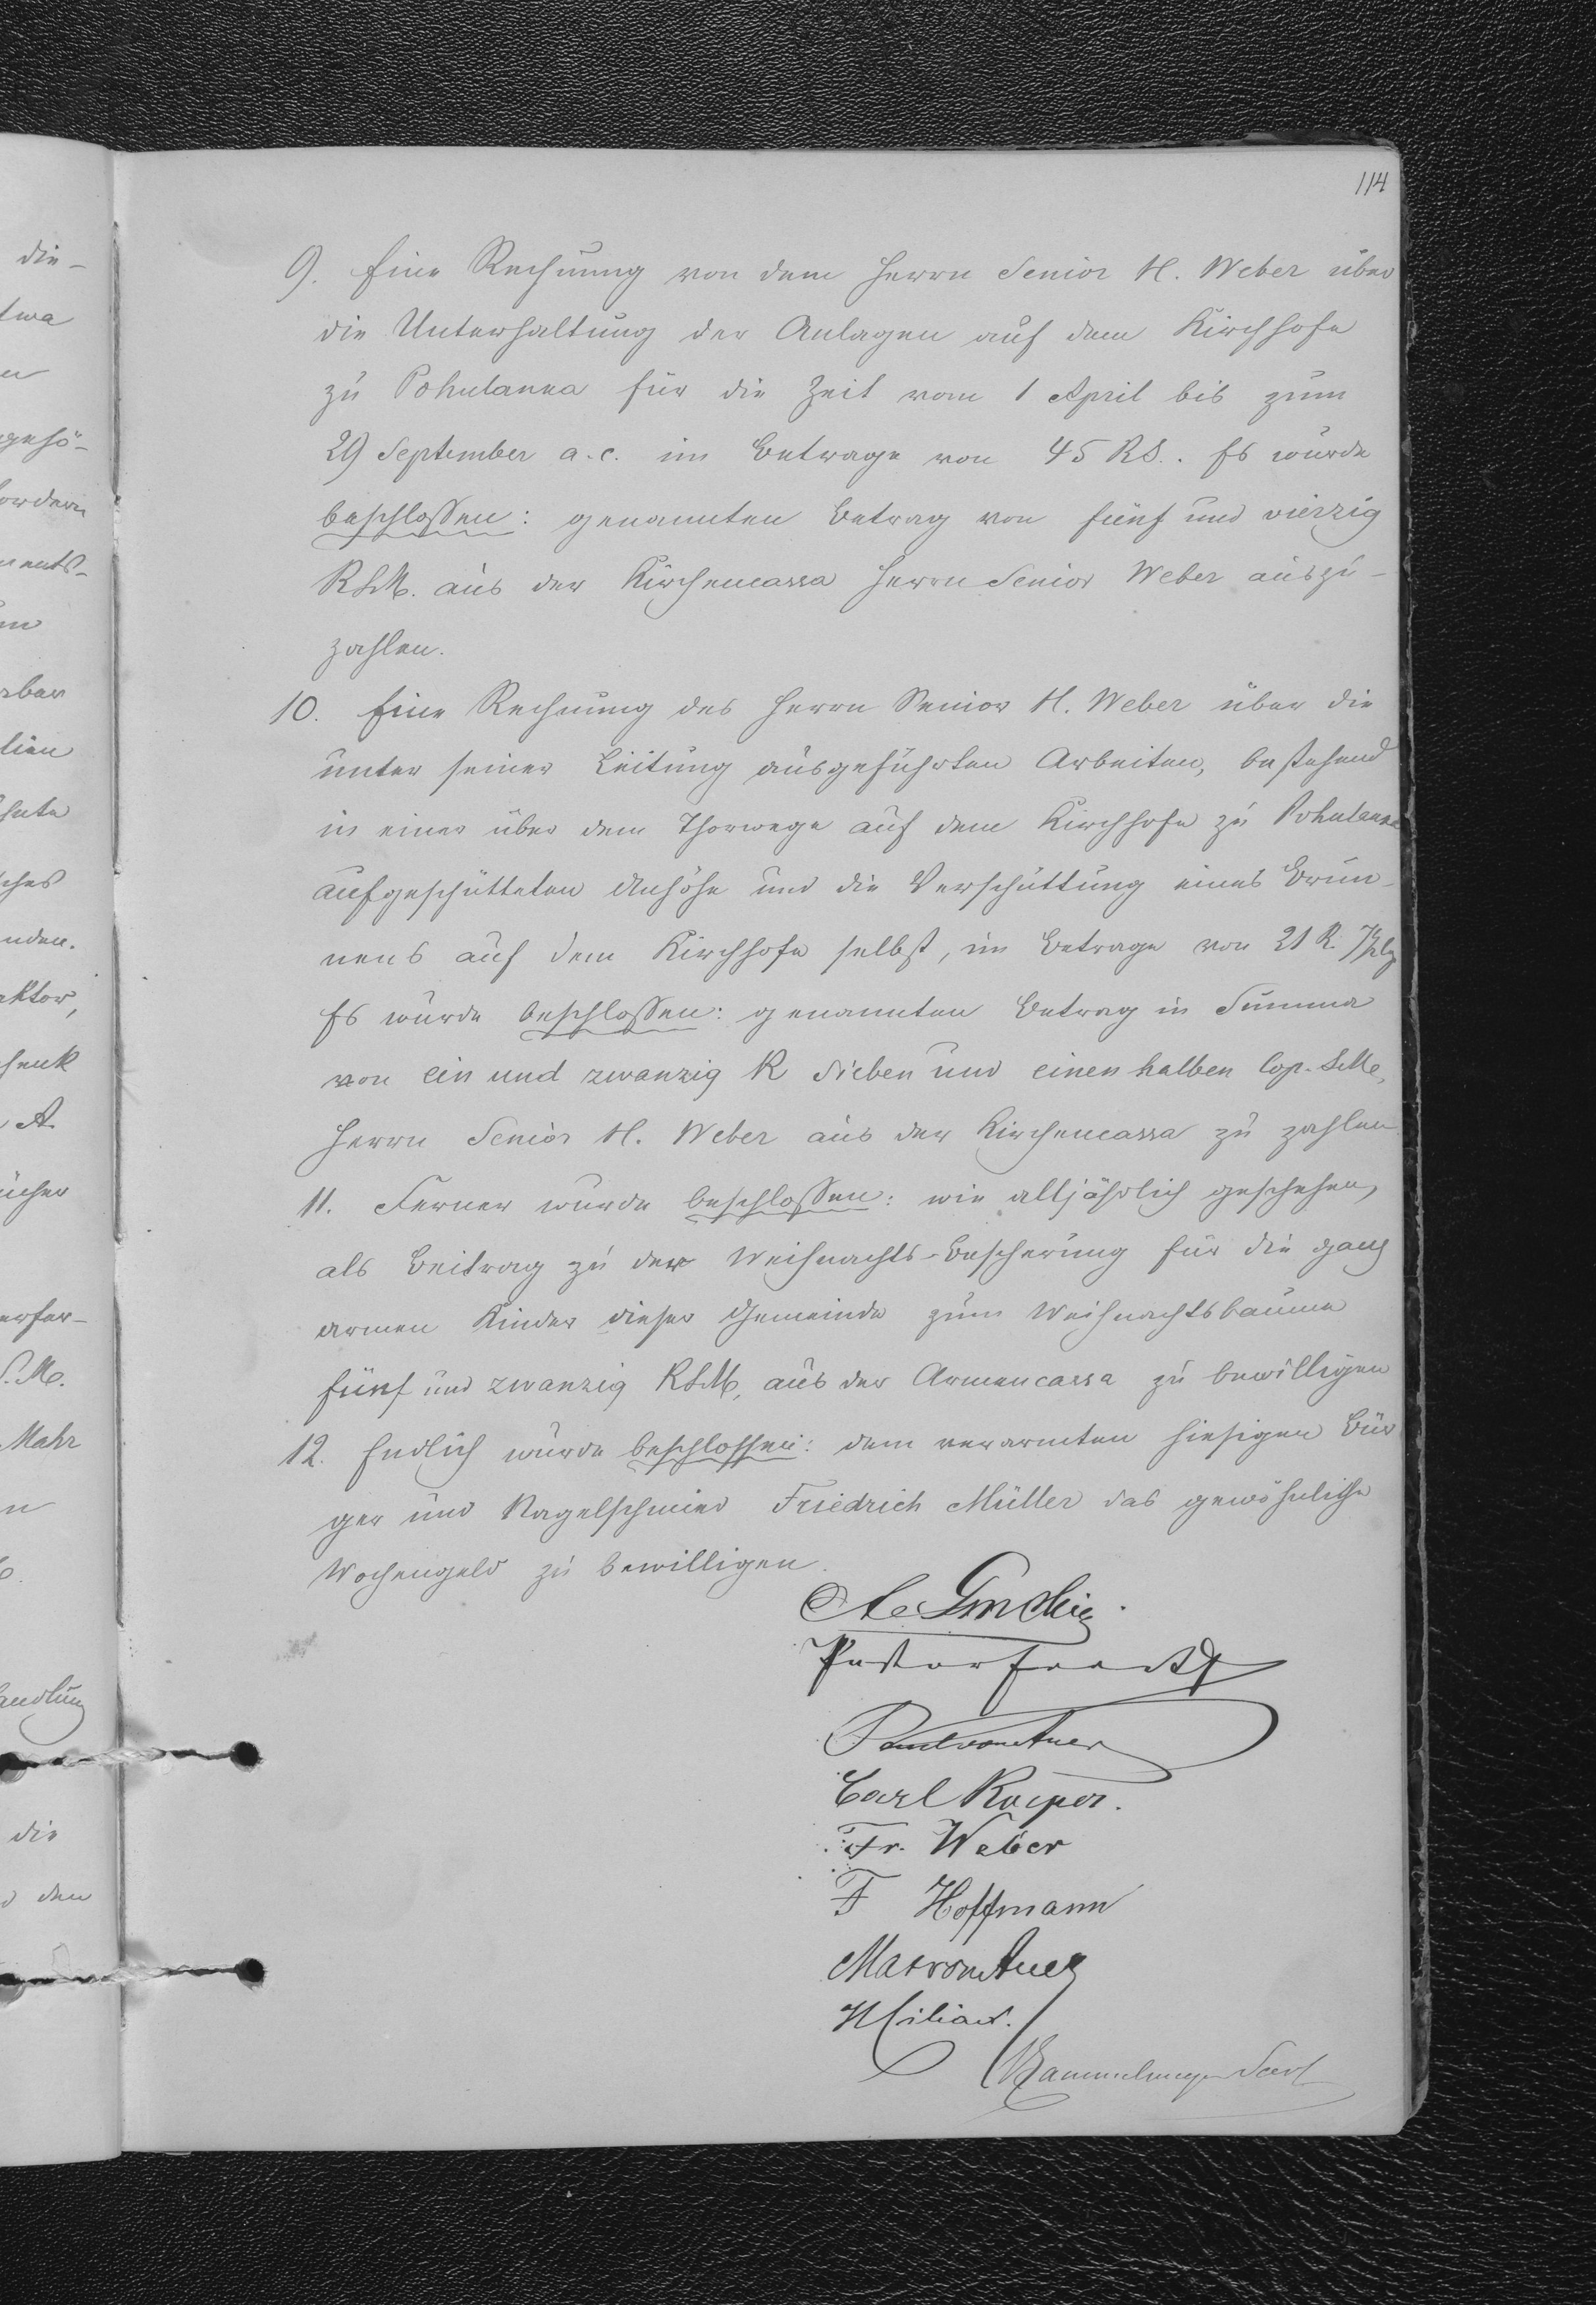 114
9. Eine Rechnung von dem Herrn Senior H. Weber über
die Unterhaltung der Anlagen auf dem Kirchhofe
zu Pohulanka für die Zeit vom 1 April bis zum
29 September a. c. im Betrage von 45 RS. Es wurde
beschlossen: genannten Betrag von fünf und vierzig
RSM. aus der Kirchencassa Herrn Senior Weber auszu-
zahlen.
10. Eine Rechnung des Herrn Senior H. Weber über die
unter seiner Leitung ausgeführten Arbeiten, bestehend
in einer über dem Thorwege auf dem Kirchhofe zu Pohulanka
aufgeschütteten Anhöhe und die Verschüttung eines Brun-
nens auf dem Kirchhofe selbst, im Betrage von 21 R. 7½
Es wurde beschlossen: genannten Betrag in Summa
von ein und zwanzig R sieben und einen halben Cop. SMe,
Herrn Senior H. Weber aus der Kirchencassa zu zahlen
11. Ferner wurde beschlossen: wie alljährlich geschehen,
als Beitrag zu der Weihnachts-Bescherung für die ganz
armen Kinder dieser Gemeinde zum Weihnachtsbaume
fünf und zwanzig RSM, aus der Armencassa zu bewilligen
12. Endlich wurde beschlossen: dem verarmten hiesigen Bür
ger und Nagelschmied Friedrich Müller das gewöhnliche
Wochengeld zu bewilligen.
Pastor
Carl
Fr. Weber
F Hoffmann
die-
etwa
ordern
ments-
aktor,
A.
S. M.
Mahr
andlung
die
den